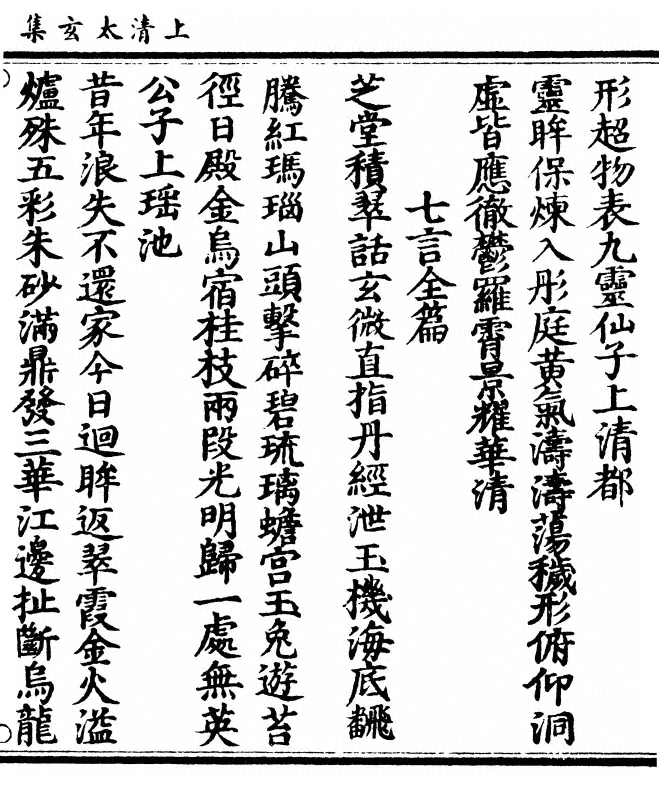 上清太玄集
形超物表九靈仙子上清都
靈眸保煉入彤庭黃氣濤濤蕩穢形俯仰洞
虛皆應徹鬱羅霄景耀華清
七言全篇
芝堂積翠話玄微直指丹經泄玉機海底飜飛
騰紅瑪瑙山頭擊碎碧琉璃蟾宮玉兔遊苔
徑日殿金烏宿桂枝兩段光明歸一處無英
公子上瑶池
昔年浪失不還家今日迴眸返翠霞金火溢
爐殊五彩朱砂滿鼎發三華江邊扯斷烏龍